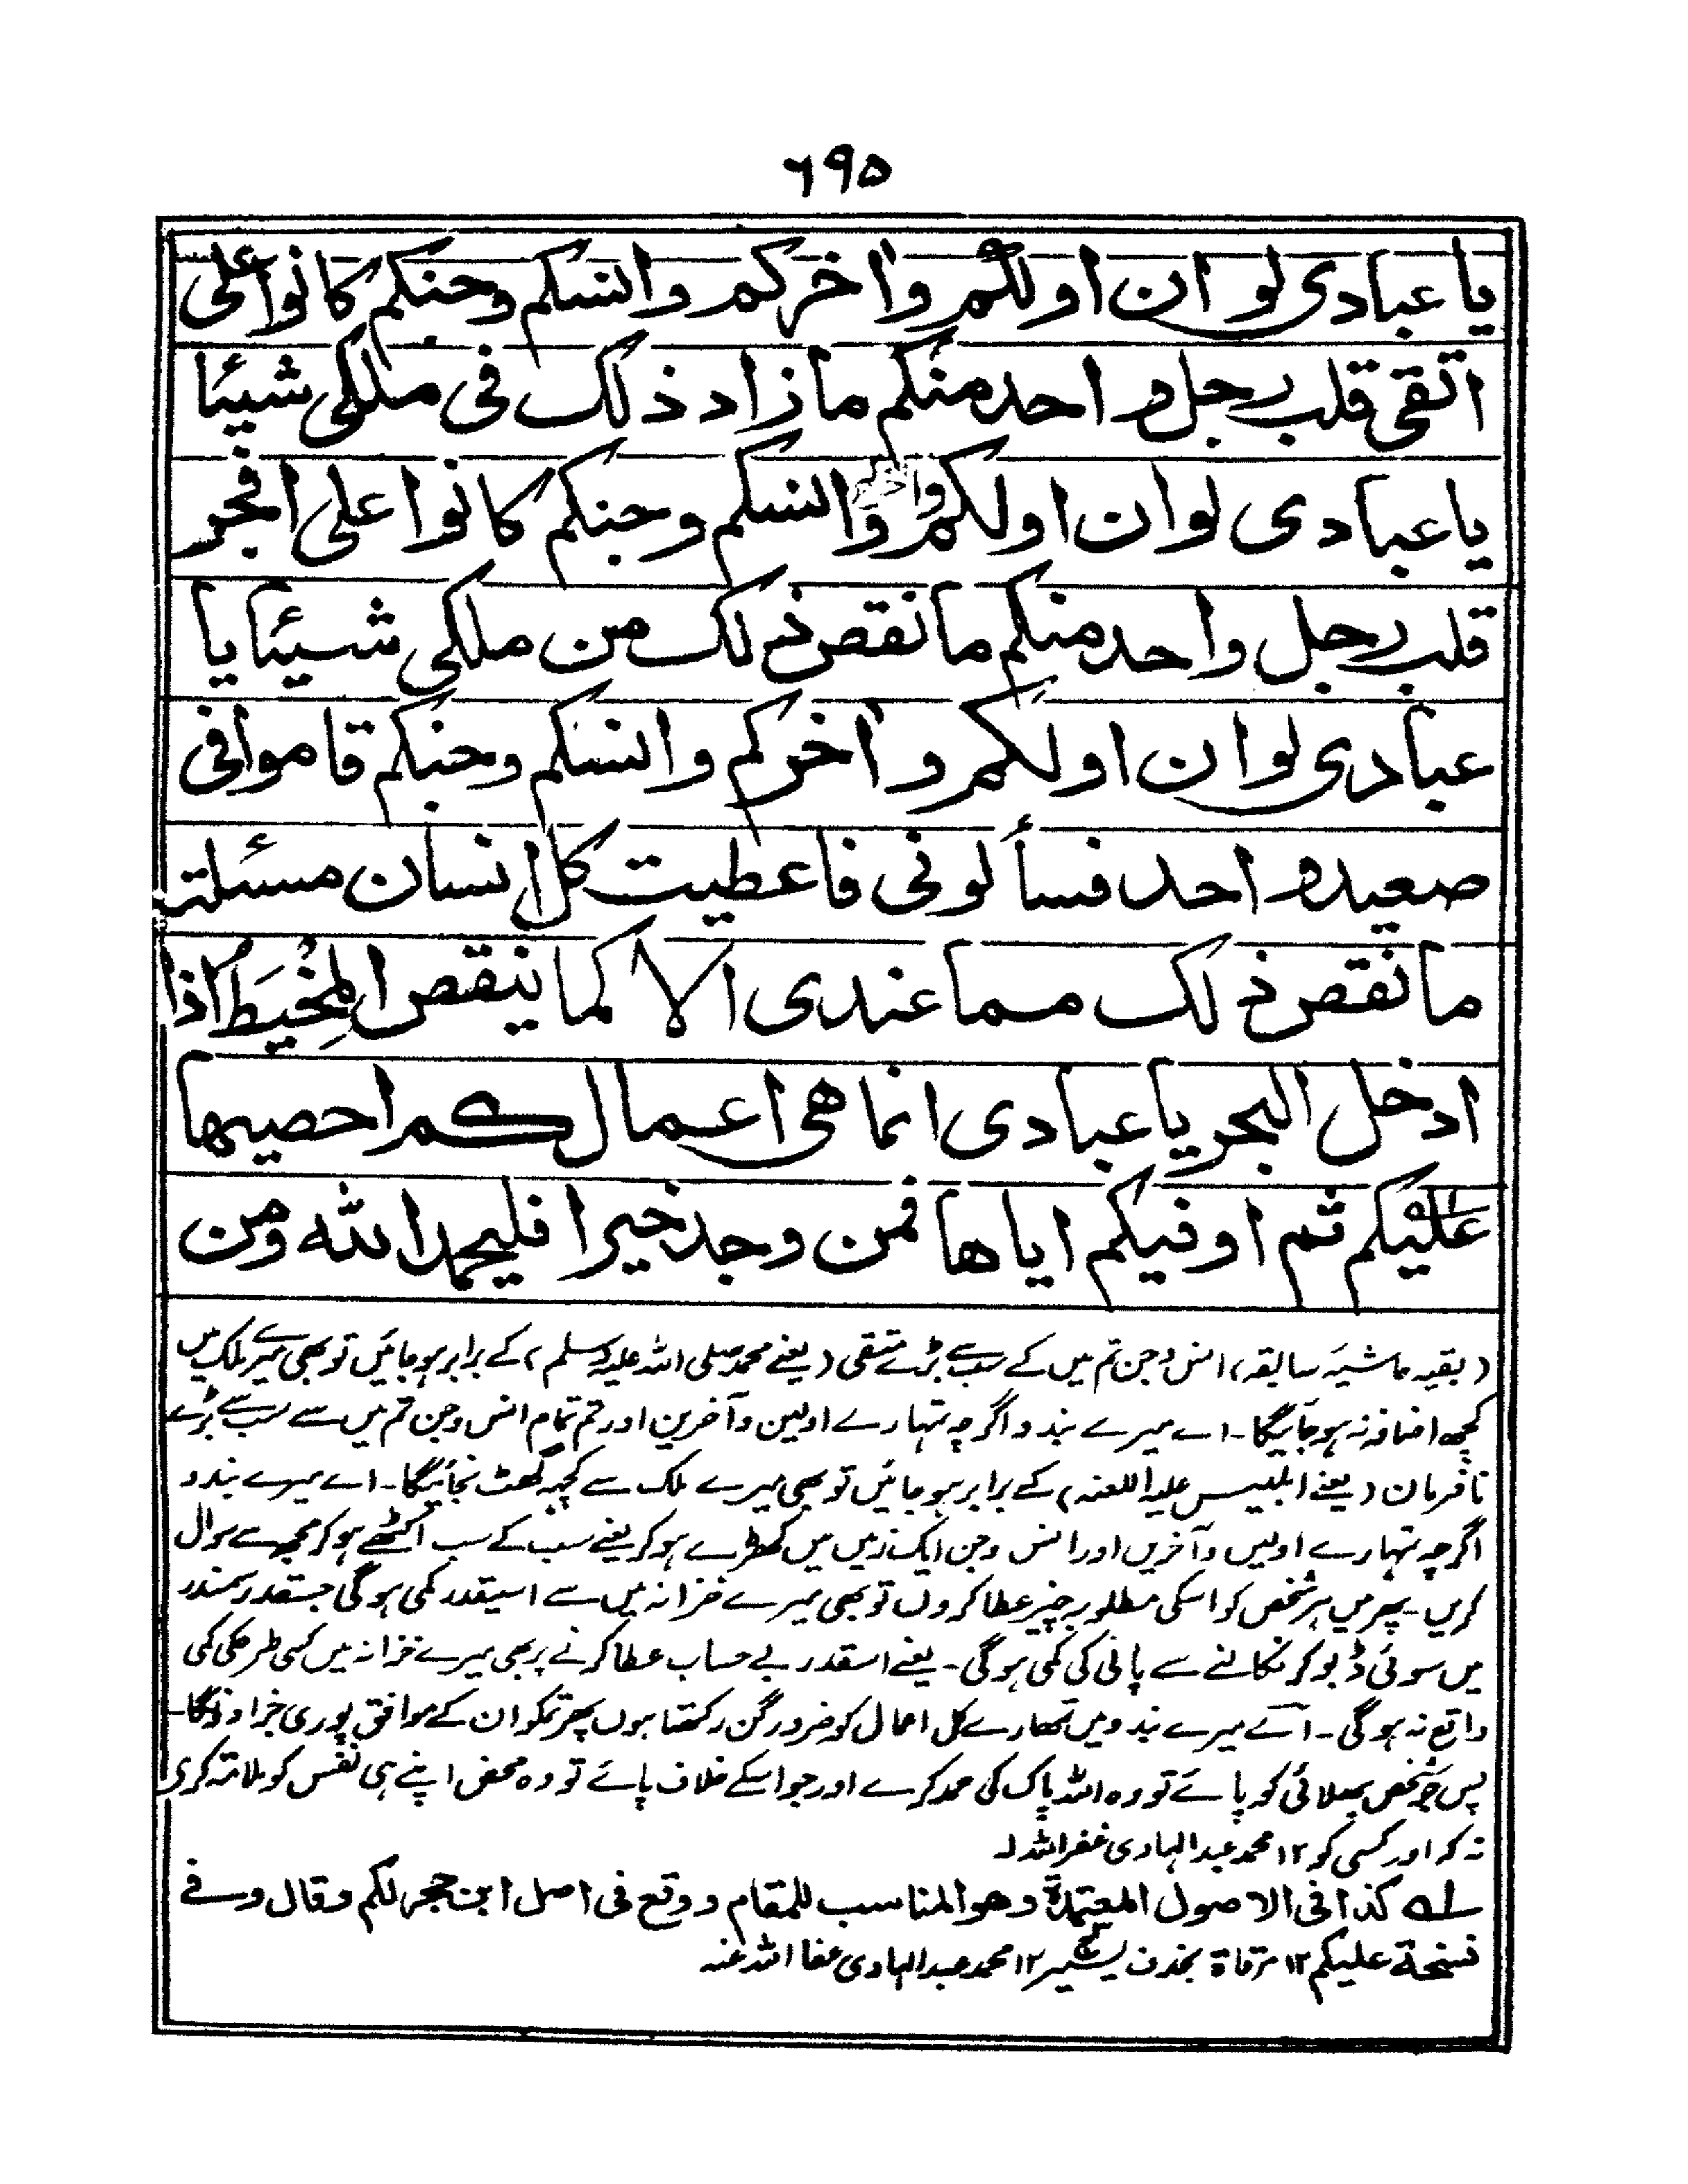 ۶۹۵
يا عبادى لو ان اولكم واخركم وانسكم وجنكم كانوا على
اتقى قلب رجل واحد منكم مازاد ذلك فى ملكى شيئا
يا عبادى لو ان اولكم واخركم وانسكم وجنكم كانوا على افجر
قلب رجل واحد منكم ما نقص ذلك من ملكى شيئا يا
عبادى لو ان اولكم واخركم وانسكم وجنكم قاموا فى
صعيد واحد فسألونى فاعطيت كل انسان مسئلته
ما نقص ذلك مما عندى الا كما ينقص المِخْيَطُ اذا
ادخل البحر يا عبادى انما هى اعمالكم احصيها
عليكم ثم اوفيكم اياها فمن وجد خيرا فليحمد الله ومن
(بقیہ حاشیہ سابقہ) انس وجن تم میں کے سب سے بڑے متقی (یعنے محمد صلی اللہ علیہ وسلم) کے برابر ہو جائیں تو بھی میرے ملک میں
کچھ اضافہ نہ ہو جائیگا۔ اے میرے بندو اگرچہ تمہارے اولین وآخرین اور تم تمام انس وجن تم میں سے سب سے بڑے
نافرمان (یعنے ابلیس علیہ اللعنہ) کے برابر ہو جائیں تو بھی میرے ملک سے کچھ گھٹ نجائیگا۔ اے میرے بندو
اگرچہ تمہارے اولیں وآخریں اور انس وجن ایک زمیں میں کھڑے ہو کر یعنے سب کے سب اکٹھے ہو کر مجھ سے سوال
کریں۔ پھر میں ہر شخص کو اسکی مطلوبہ چیز عطا کروں تو بھی میرے خزانہ میں سے اسیقدر کمی ہوگی جسقدر سمندر
میں سوئی ڈبو کر نکالنے سے پانی کی کمی ہوگی۔ یعنے اسقدر بے حساب عطا کرنے پر بھی میرے خزانہ میں کسی طرحکی کمی
واقع نہ ہوگی۔ اے میرے بندو میں تمھارے کل اعمال کو ضرور گن رکھتا ہوں پھر تمکو ان کے موافق پوری جزا دونگا۔
پس جو شخص بھلائی کو پائے تو وہ اللہ پاک کی حمد کرے اور جو اسکے خلاف پائے تو وہ محض اپنے ہی نفس کو ملامتہ کرے
نہ کہ اور کسی کو ۱۲ محمد عبد الہادی غفر اللہ لہ
لہ كذا فى الاصول المعتمدة وهو المناسب للمقام ووقع فى اصل ابن حجر لكم وقال وفے
نسخة عليكم ۱۲ مرقاة بحذف يسير ۱۲ محمد عبد الہادی عفا اللہ عنہ